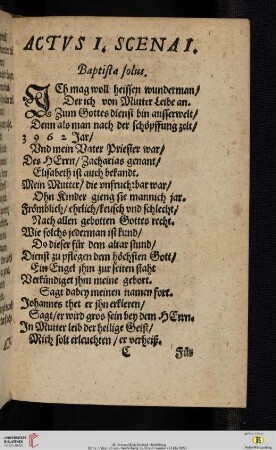 ACTVS I. SCENA I.
Baptista solus.
ICh mag woll heissen wunderman/
Der ich von Mutter Leibe an.
Zum Gottes dienst bin ausserwelt/
Denn als man nach der schöpffung zelt/
3 9 6 2 Jar/
Vnd mein Vater Priester war/
Des HErrn/ Zacharias genant/
Elisabeth ist auch bekandt.
Mein Mutter/ die vnfruchtbar war/
Ohn Kinder gieng sie mannich jar.
Frömblich/ ehrlich/ keusch vnd schlecht/
Nach allen gebotten Gottes recht.
Wie solchs jederman ist kund/
Do dieser für dem altar stund/
Dienst zu pflegen dem höchsten Gott/
Ein Engel jhm zur seiten staht
Verkündiget jhm meine gebort.
Sagt dabey meinen namen fort.
Johannes thet er jhn erkleren/
Sagt/ er wird gros sein bey dem HErrn.
In Mutter leib der heilige Geist/
Mich solt erleuchten/ er verheiß.
C Füs